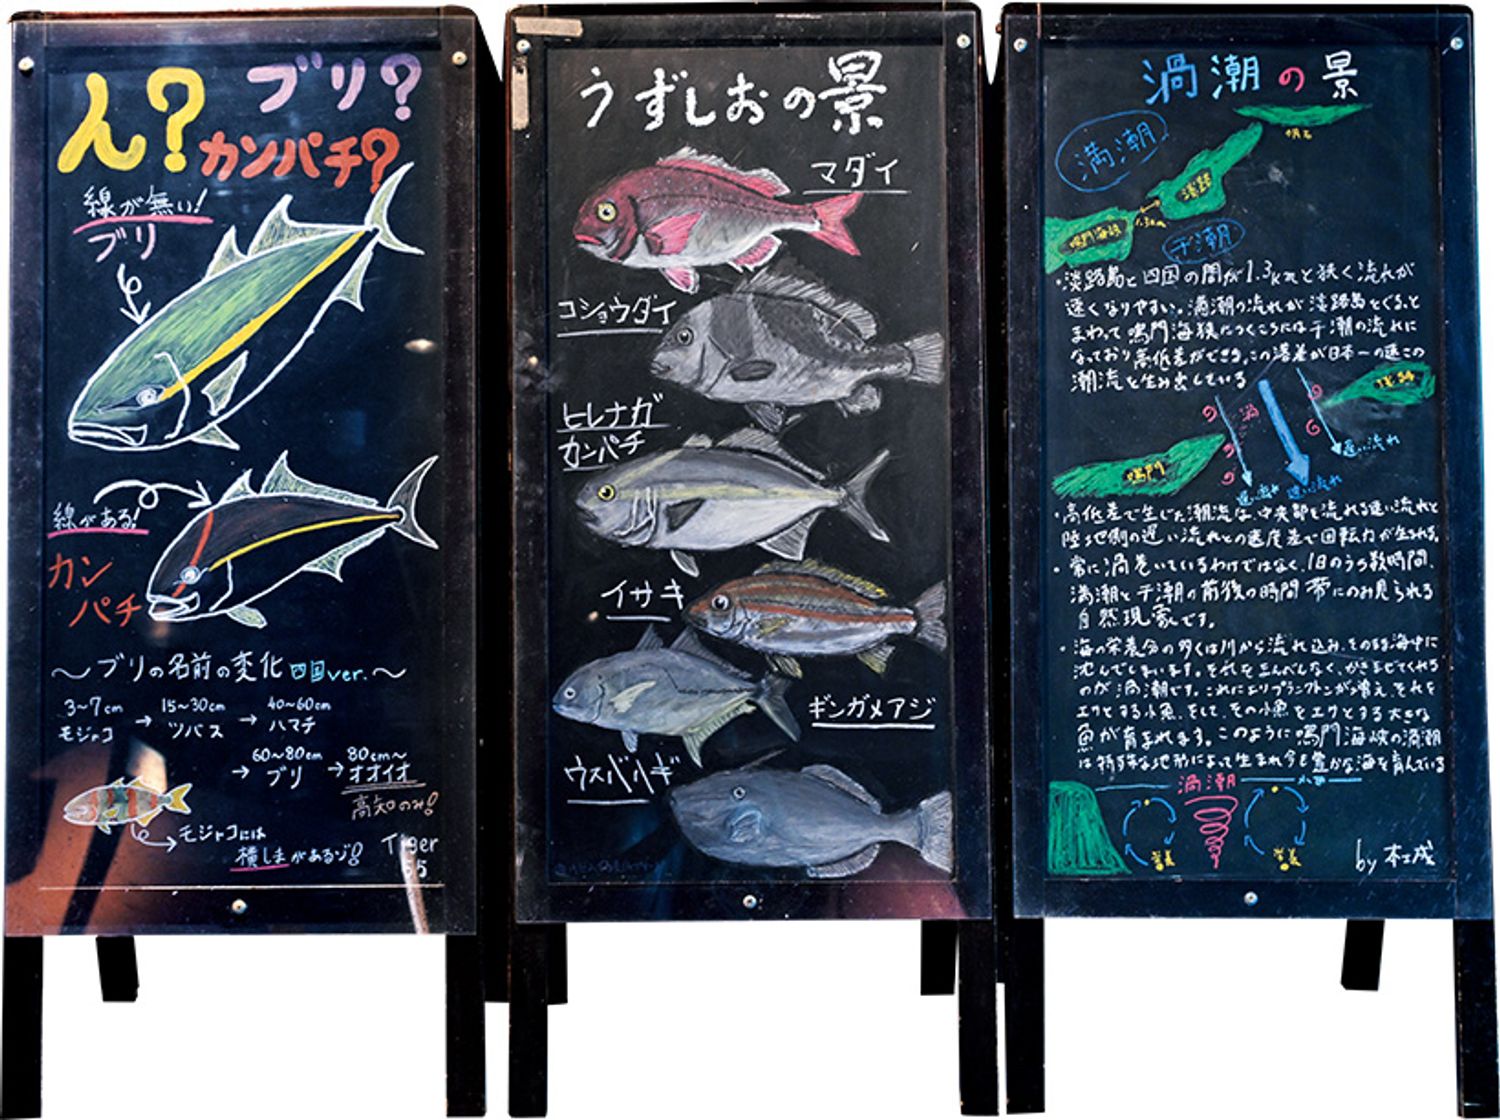 ん?
ブリ?
カンパチ?
線が無い!
ブリ
線がある!
カン
パチ
～ブリの名前の変化 四国ver.～
3～7cm
モジャコ
→
15～30cm
ツバス
→
40～60cm
ハマチ
→
60～80cm
ブリ
→
80cm～
オオイオ
高知のみ!
モジャコには
横しまがあるゾ!
Tiger
うずしおの景
マダイ
コショウダイ
ヒレナガ
カンパチ
イサキ
ギンガメアジ
ウスバハギ
渦潮の景
満潮
明石
淡路
1.3km
鳴門海峡
干潮
・淡路島と四国の間が1.3kmと狭く流れが
速くなりやすい。満潮の流れが淡路島をぐるっと
まわって鳴門海狭につくころには干潮の流れに
なっており高低差ができる。この落差が日本一の速さの
潮流を生み出している
渦
遅い流れ
鳴門
速い流れ
・高低差で生じた潮流は中央部を流れる速い流れと
陸地側の遅い流れとの速度差で回転力が生まれる。
・常に渦巻いているわけではなく、1日のうち数時間、
満潮と干潮の前後の時間帯にのみ見られる
自然現象です。
・海の栄養分の多くは川から流れ込み、そのまま海中に
沈んでしまいます。それをまんべんなく、かきまぜてくれる
のが渦潮です。これによりプランクトンが増え、それを
エサとする小魚、そして、その小魚をエサとする大きな
魚が育まれます。このように鳴門海峡の渦潮
は特殊な地形によって生まれ今も豊かな海を育んでいる
渦潮
栄養
栄養
by